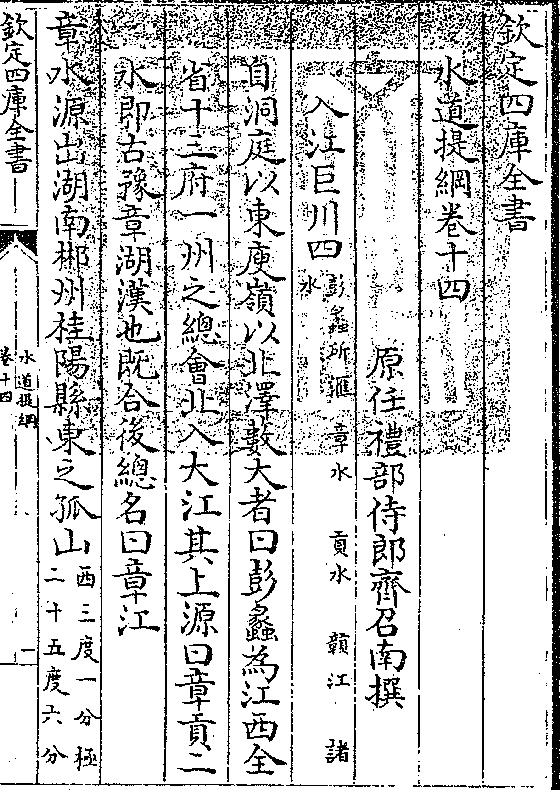 欽定四庫全書
水道提綱卷十四
原任禮部侍郎齊召南撰
入江巨川四彭蠡所滙 章水 貢水 贛江 諸
水
自洞庭以東庾嶺以北澤藪大者曰彭蠡為江西全
省十三府一州之總會北入大江其上源曰章貢二
水即古豫章湖漢也既合後總名曰章江
章水源出湖南郴州桂陽縣東之孤山西三度一分極
二十五度六分
欽定四庫全書
水道提綱
卷十四
一